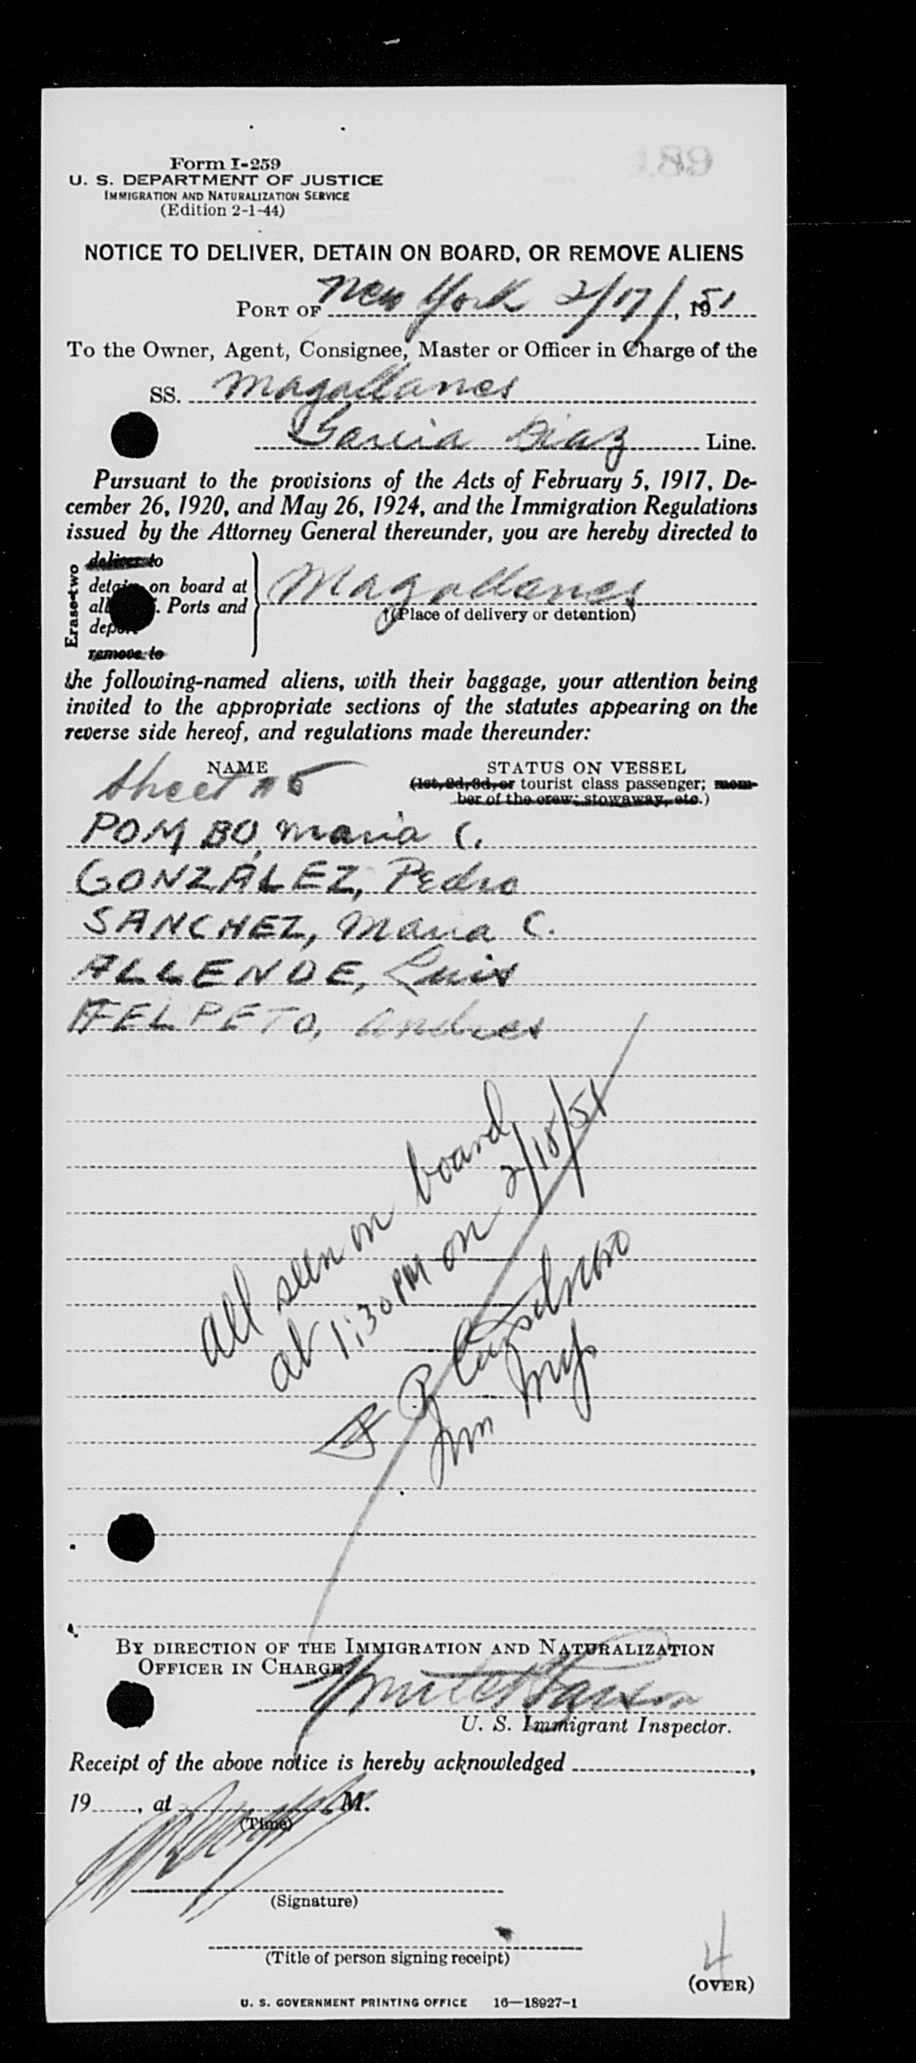 189
Form I-259
U. S. DEPARTMENT OF JUSTICE
IMMIGRATION AND NATURALIZATION SERVICE
(Edition 2-1-44)
NOTICE TO DELIVER, DETAIN ON BOARD, OR REMOVE ALIENS
PORT OF New York 2/17/, 1951
To the Owner, Agent, Consignee, Master or Officer in Charge of the
SS. Magallanes
Garcia Diaz Line.
Pursuant to the provisions of the Acts of February 5, 1917, De-
cember 26, 1920, and May 26, 1924, and the Immigration Regulations
issued by the Attorney General thereunder, you are hereby directed to
Erase two
deliver to
detain on board at
all . Ports and
deport
remove to
Magallanes
(Place of delivery or detention)
the following-named aliens, with their baggage, your attention being
invited to the appropriate sections of the statutes appearing on the
reverse side hereof, and regulations made thereunder:
NAME STATUS ON VESSEL
Sheet #5 (1st, 2d, 3d, or tourist class passenger; mem-
ber of the crew; stowaway, etc.)
POMBO, Maria C.
GONZÁLEZ, Pedro
SANCHEZ, Maria C.
ALLENDE, Luis
FELPETO, Andres
all seen on board
at 1:30 PM on 2/18/51
Imm Insp.
BY DIRECTION OF THE IMMIGRATION AND NATURALIZATION
OFFICER IN CHARGE.
U. S. Immigrant Inspector.
Receipt of the above notice is hereby acknowledged ,
19 , at M.
(Time)
(Signature)
(Title of person signing receipt)
4
(OVER)
U. S. GOVERNMENT PRINTING OFFICE 16—18927-1